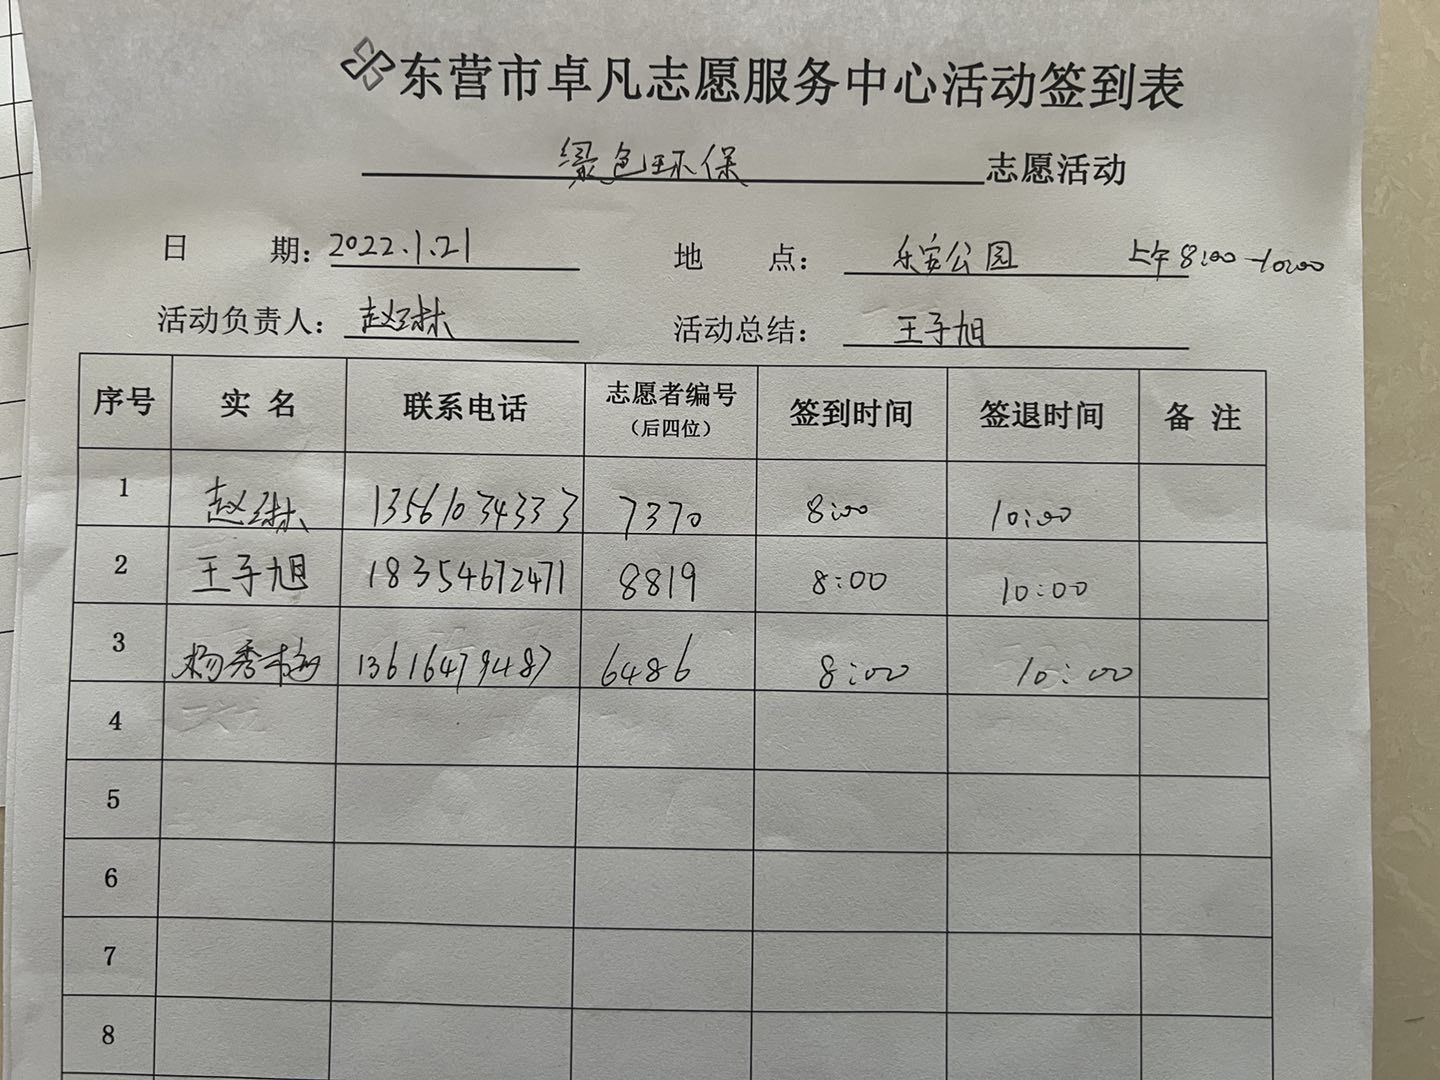 东营市卓凡志愿服务中心活动签到表
绿色环保 志愿活动
日 期：2022.1.21 地 点：乐安公园 上午8:00-10:00
活动负责人：赵琳 活动总结：王子旭
序号 实名 联系电话 志愿者编号（后四位） 签到时间 签退时间 备注
1 赵琳 13561034333 7370 8:00 10:00
2 王子旭 18354672471 8819 8:00 10:00
3 杨秀梅 13616479487 6486 8:00 10:00
4
5
6
7
8